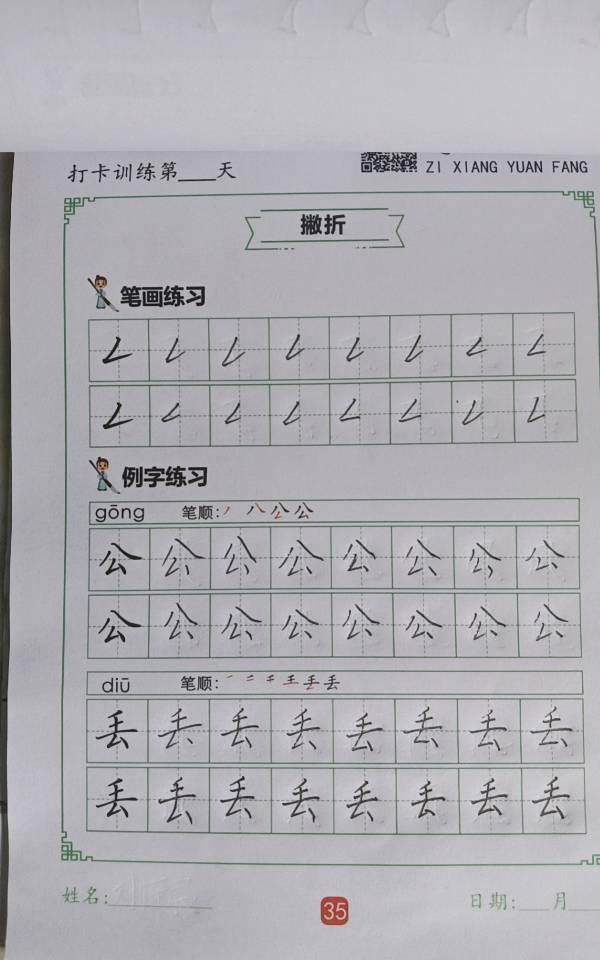 打卡训练第____天
ZI XIANG YUAN FANG
撇折
笔画练习
𠃋 𠃋 𠃋 𠃋 𠃋 𠃋 𠃋 𠃋
𠃋 𠃋 𠃋 𠃋 𠃋 𠃋 𠃋 𠃋
例字练习
gōng 笔顺: 丿 八 公 公
公 公 公 公 公 公 公 公
公 公 公 公 公 公 公 公
diū 笔顺: 一 二 千 王 丢 丢
丢 丢 丢 丢 丢 丢 丢 丢
丢 丢 丢 丢 丢 丢 丢 丢
姓名:________
35
日期:___月___